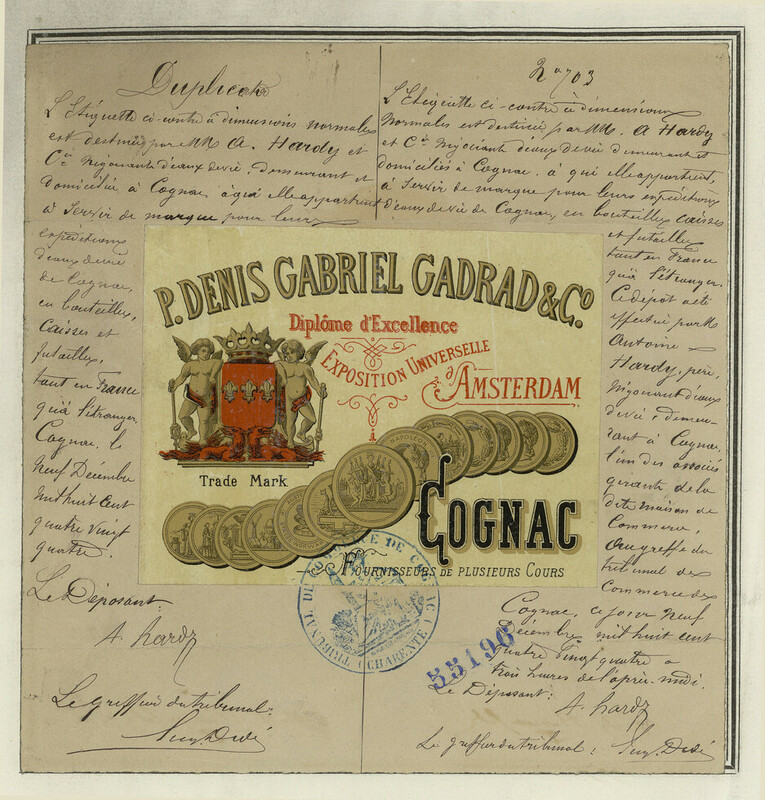 Duplicata
L'Etiquette ci-contre à dimensions normales
est destinée par MM A. Hardy et
Cie Négociants d'eaux de vie, demeurant et
domiciliés à Cognac, à qui elle appartient
à servir de marque pour leurs
expéditions
d'eaux de vie
de Cognac,
en bouteilles,
Caisses et
futailles,
tant en France
qu'à l'étranger.
Cognac, le
Neuf Décembre
mil huit cent
quatre vingt
quatre.
Le Déposant:
A. hardy
Le greffier du tribunal:
No 703
L'Etiquette ci-contre à dimensions
Normales est destinée par MM. A Hardy
et Cie Négociants d'eaux de vie demeurant et
domiciliés à Cognac, à qui elle appartient,
à servir de marque pour leurs expéditions
d'eaux de vie de Cognac, en bouteilles caisses
et futailles
tant en France
qu'à l'étranger.
Ce dépôt a été
effectué par M
Antoine
Hardy, père,
Négociant d'eaux
de vie, demeu-
rant à Cognac,
l'un des associés
gérants de la
dite maison de
Commerce,
au greffe du
tribunal de
Commerce de
Cognac, ce jour neuf
Décembre mil huit cent
quatre vingt quatre à
trois heures de l'après-midi.
Le Déposant:
A hardy
Le greffier du tribunal:
P. DENIS GABRIEL GADRAD & Co
Diplôme d'Excellence
EXPOSITION UNIVERSELLE
d'AMSTERDAM
Trade Mark
NAPOLEON
COGNAC
FOURNISSEURS DE PLUSIEURS COURS
TRIBUNAL DE COMMERCE DE COGNAC
(CHARENTE)
55196